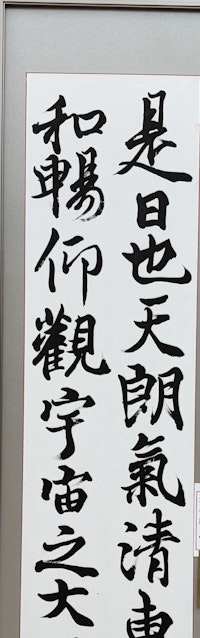 是日也天朗氣清惠
和暢仰觀宇宙之大